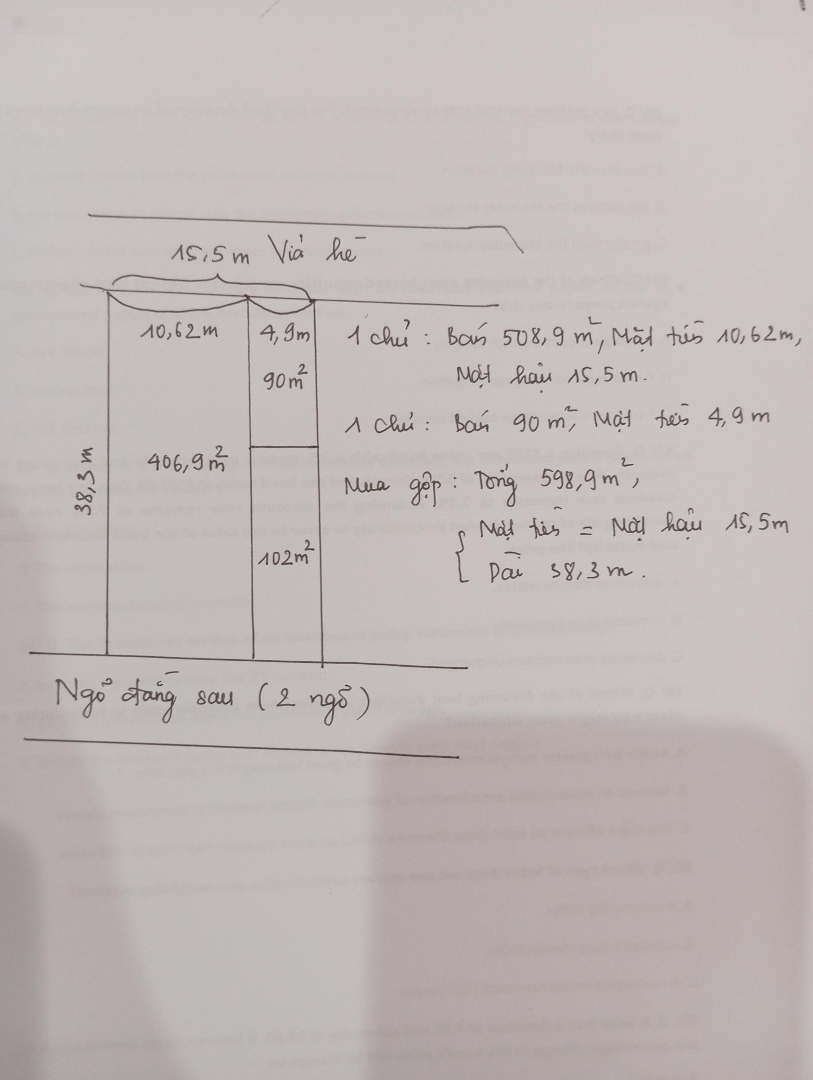 15,5m Vỉả hè
10,62m
4,9m
90m²
38,3m
406,9m²
102m²
1 chủ : Bán 508,9m², Mặt tiền 10,62m,
Mặt hậu 15,5m.
1 chủ : Bán 90m², Mặt tiền 4,9m
Mua gộp : Tổng 598,9m²,
{ Mặt tiền = Mặt hậu 15,5m
Dài 38,3m.
Ngõ đằng sau (2 ngõ)